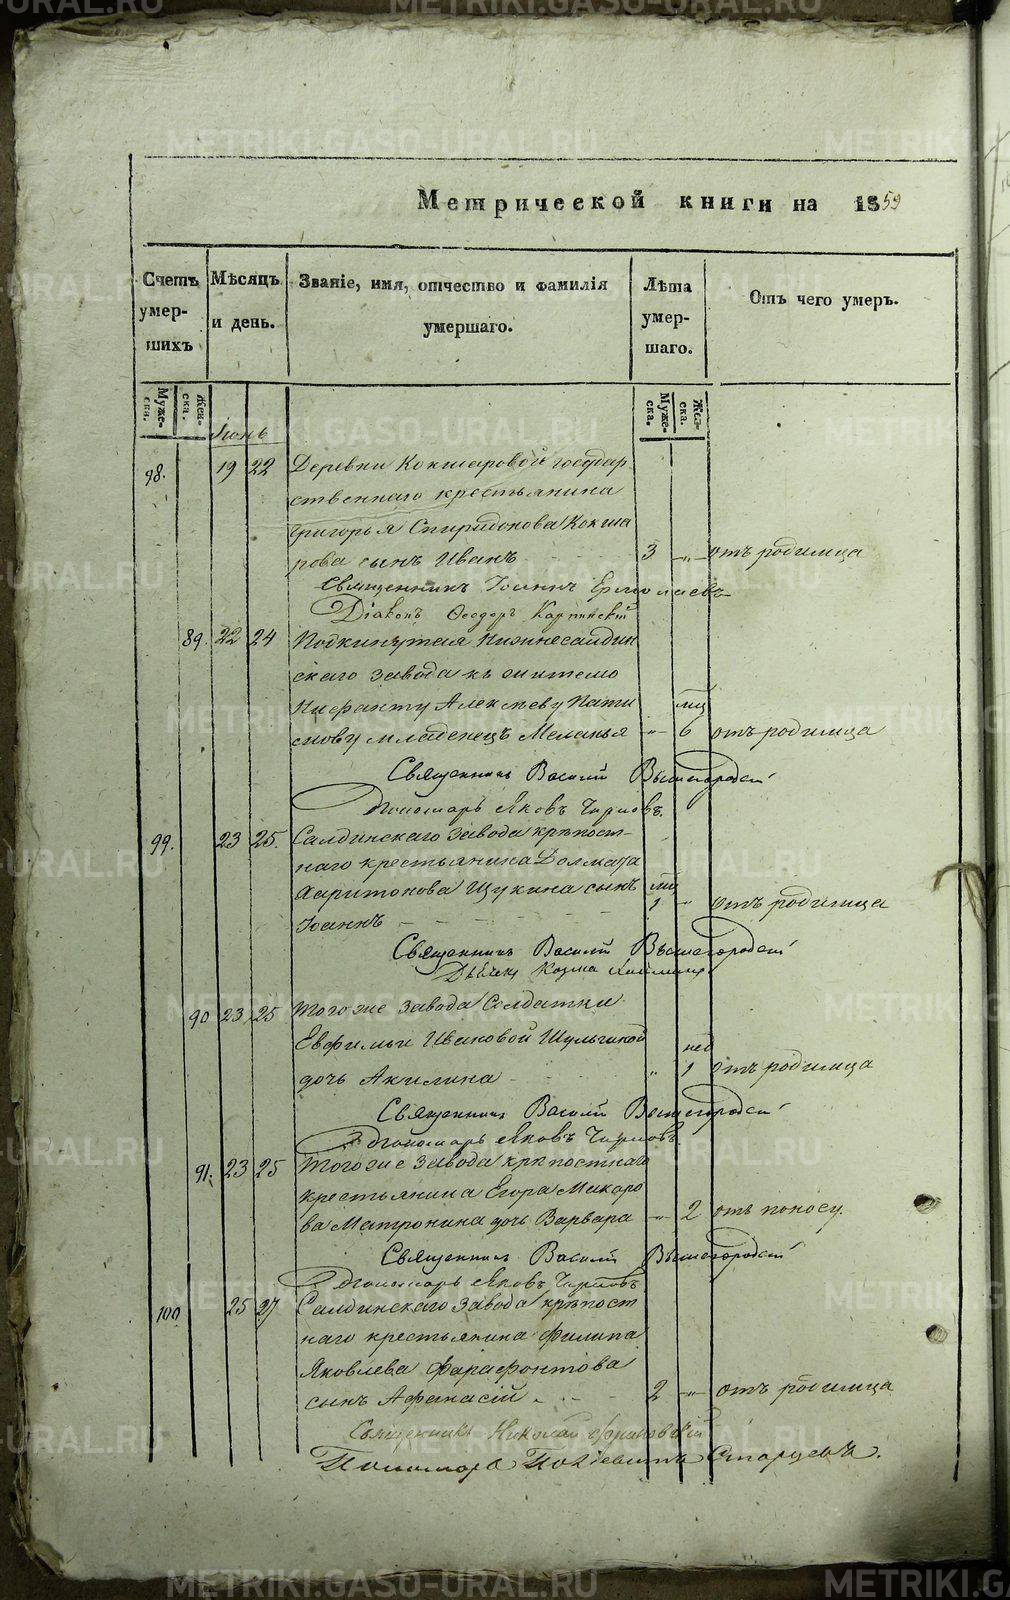 METRIKI.GASO-URAL.RU
Метрической книги на 1859
Счетъ умер- шихъ
Мѣсяцъ и день.
Званіе, имя, отчество и фамилія умершаго.
Лѣта умер- шаго.
Отъ чего умеръ.
Муже- ска.
Жен- ска.
Муже- ска.
Жен- ска.
Іюнь
98. 19 22 Деревни Кокшаровой государ
ственнаго крестьянина
Григорья Спиридонова Кокша
рова сынъ Иванъ 3 -„- отъ родимца
Священникъ Іоаннъ Ермолаевъ
Діаконъ Ѳеодоръ Карпинскій
89. 22 24 Подкинутая Нижнесалдин
скаго завода къ жителю
Алексѣеву
мц
младенецъ Меланья -„- 6 отъ родимца
Священникъ Василій Вышегородскій
Пономарь Яковъ Чирковъ.
99. 23 25. Салдинскаго завода крѣпост-
наго крестьянина Долмата
Харитонова Щукина сынъ мц
Іоаннъ 1 „ отъ родимца
Священникъ Василій Вышегородскій
Дьячекъ Козма
90 23 25 Того же завода Солдатки
Евфимьи Ивановой нед
дочь Акилина „ 1 отъ родимца
Священникъ Василій Вышегородскій
Пономарь Яковъ Чирковъ
91. 23 25 Того же завода крѣпостнаго
крестьянина Егора Макаро
ва Матронина дочь Варвара -„- 2 отъ поносу.
Священникъ Василій Вышегородскій
Пономарь Яковъ Чирковъ
100 25 27 Салдинскаго завода крѣпост
наго крестьянина Филипа
Яковлева Фарафонтова
сынъ Афанасій 2 -„- отъ родимца
Священникъ Николай
Пономарь Старцевъ.